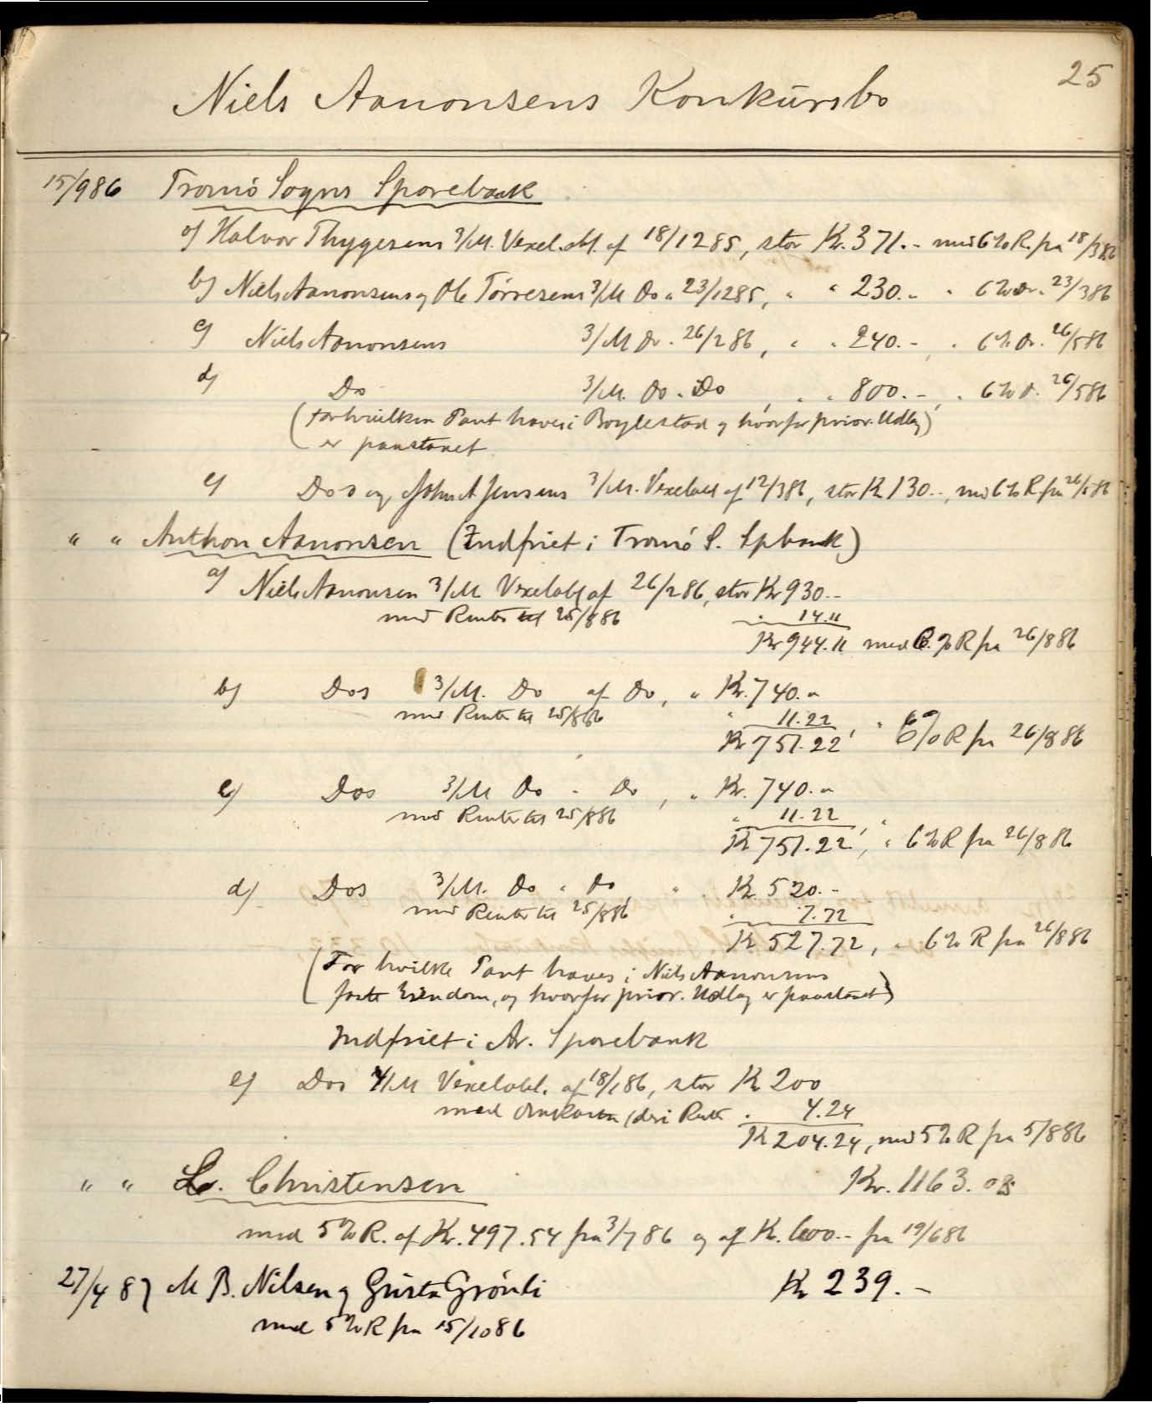 25
Niels Aanonsens Konkursbo
15/9 86 Tromö Sogns Sparebank
a) Halvor Thygesens 3/M. Vexelobl. af 18/12 85, stor Kr. 371.- med 6% R. fra 18/3 86
b) Niels Aanonsens og Ole Torresens 3/M Do " 23/12 85, " " 230.- " 6% do. 23/3 86
c) Niels Aanonsens 3/M Do. 26/2 86, " " 240.- , " 6% Do. 26/5 86
d) Do 3/M. Do. Do , " " 800.- , " 6% d. 26/5 86
(for hvilken Pant haves i Boylestad og hvorfor prior. Udlæg)
er paastaaet
e) Dos og John A Jensens 3/M. Vexelobl af 12/3 86, stor Kr 130.-, med 6% R fra 26/5 86
" " Anthon Aanonsen (Indfriet i Tromö S. Spbank)
a) Niels Aanonsen 3/M Vexelobl af 26/2 86, stor Kr 930.-
med Renter til 25/8 86 " 14.11
Kr 944.11 med 6.% R fra 26/8 86
b) Dos 3/M. Do af Do, " Kr. 740.-
med Renter til 25/8 86 " 11.22
Kr 751.22, " 6% R fra 26/8 86
c) Dos 3/M Do " Do, " Kr. 740.-
med Renter til 25/8 86 " 11.22
Kr 751.22, " 6% R fra 26/8 86
d) Dos 3/M. Do " Do " Kr. 520.-
med Renter til 25/8 86 " 7.72
Kr 527.72, " 6% R fra 26/8 86
(For hvilke Pant haves i Niels Aanonsens
faste Eiendom, og hvorfor prior. Udlæg er paastaaet)
Indfriet i Ar. Sparebank
e) Dos 4/M Vexelobl. af 18/1 86, stor Kr 200
med Omkostn. deri Rente " 4.24
Kr 204.24, med 5% R fra 5/8 86
" " L. Christensen Kr. 1163.08
med 5% R. af Kr. 497.54 fra 3/7 86 og af Kr. 600.- fra 19/6 86
27/4 87 M B. Nilsen og Gusta Grönli Kr 239.-
med 5% R fra 15/10 86